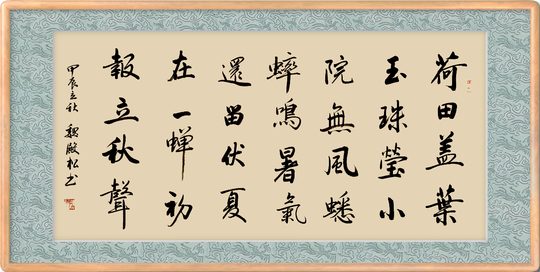 荷田盖葉
玉珠瑩小
院無風蟋
蟀鳴暑氣
還留伏夏
在一蝉初
報立秋聲
甲辰立秋 魏殿松书